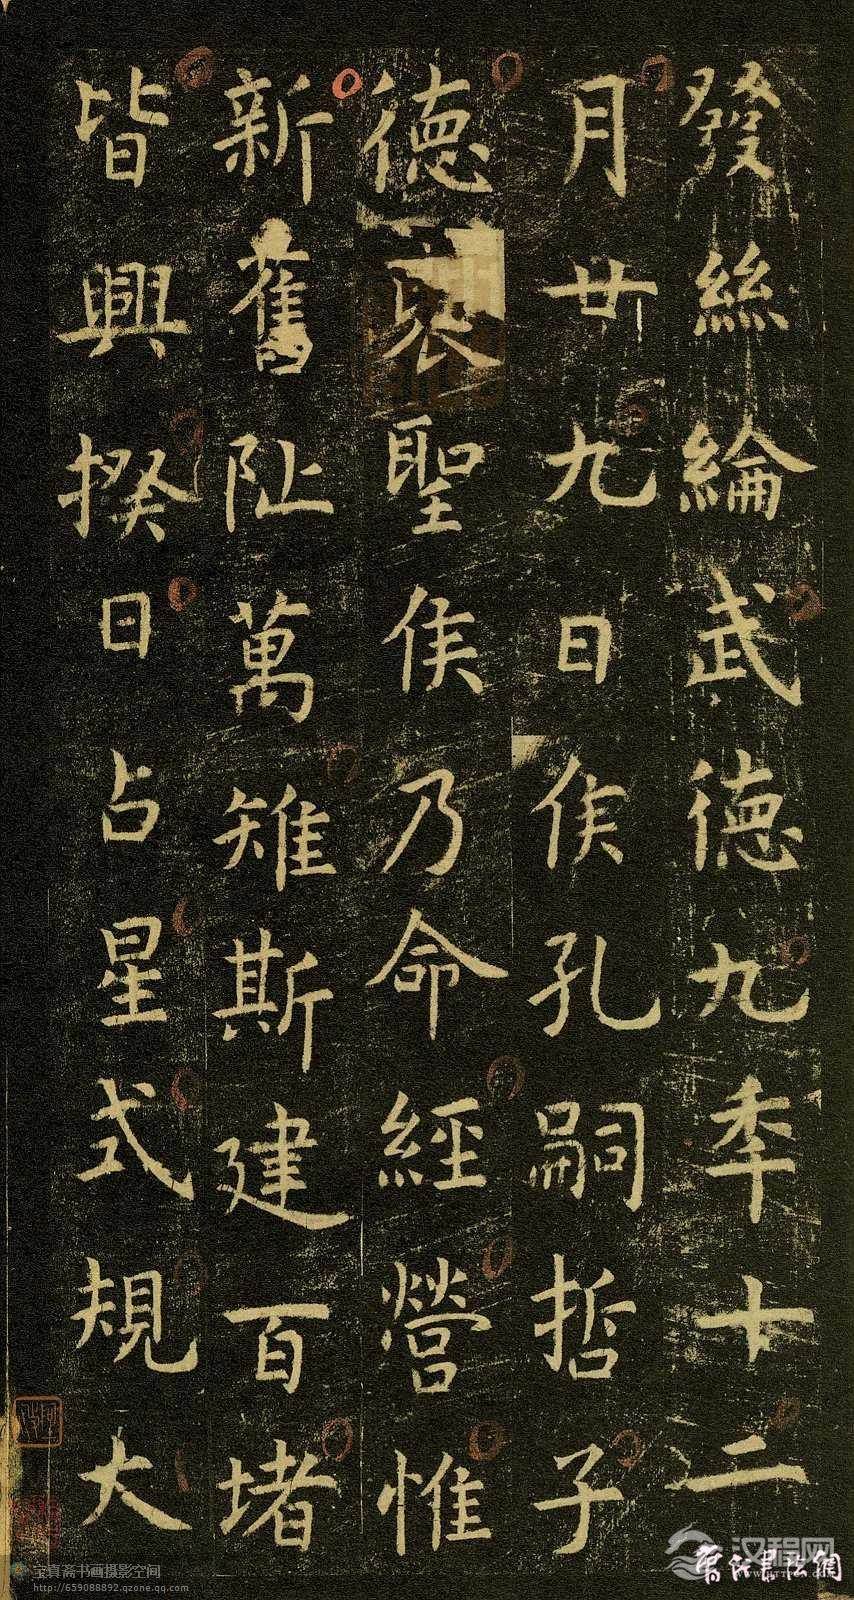 發絲綸武德九年十二
月廿九日侯孔嗣哲子
德裦聖侯乃命經營惟
新舊阯萬雉斯建百堵
皆興揆日占星式規大
宝真斋书画摄影空间
http://659088892.qzone.qq.com
汉程网